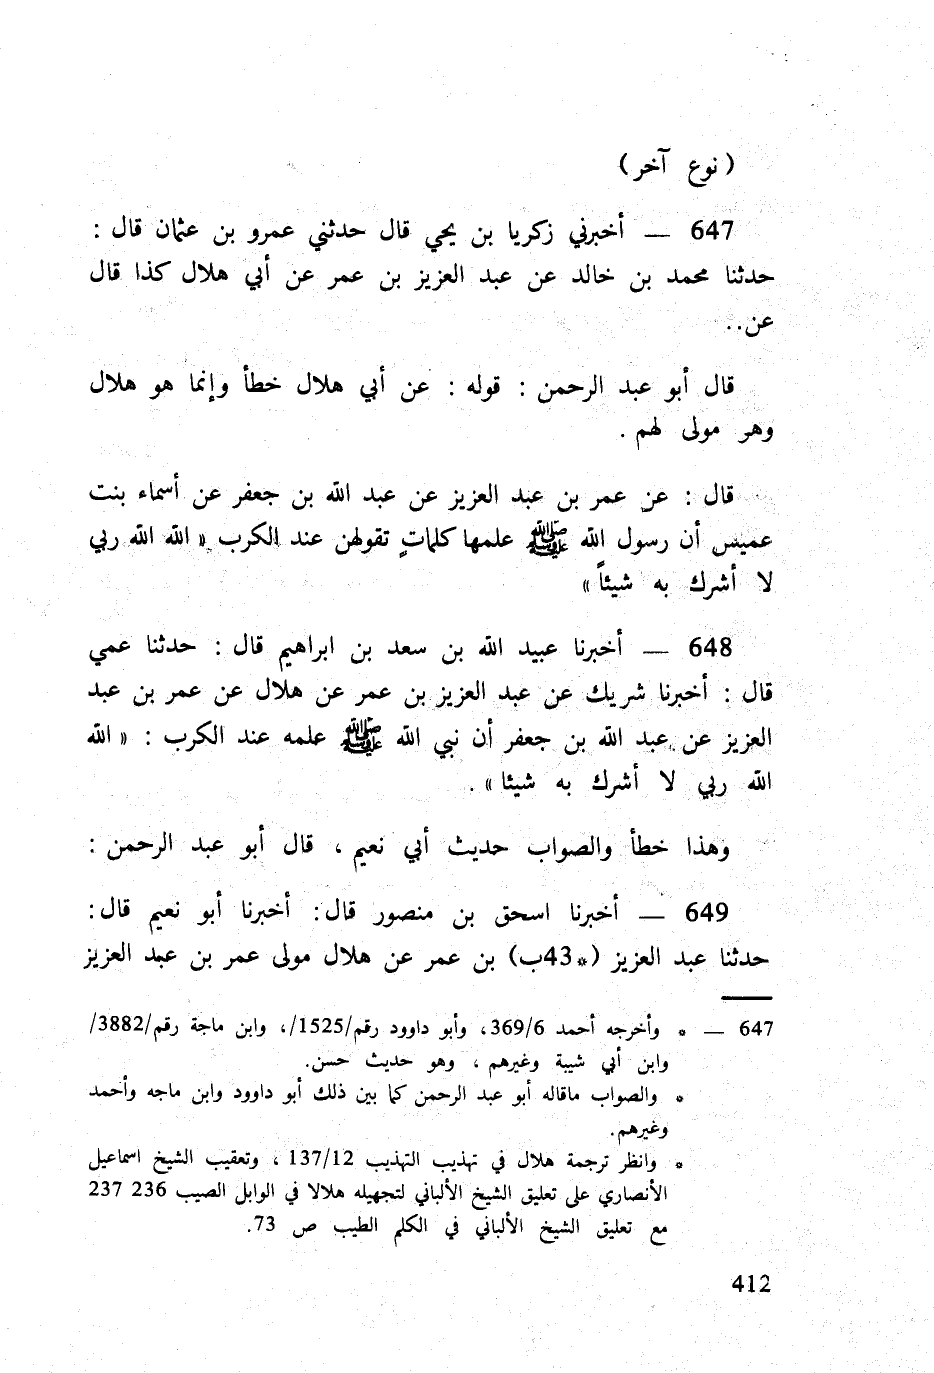 ( نوع آخر )
647 — أخبرني زكريا بن يحي قال حدثني عمرو بن عثمان قال :
حدثنا محمد بن خالد عن عبد العزيز بن عمر عن أبي هلال كذا قال
عن..
قال أبو عبد الرحمن : قوله : عن أبي هلال خطأ وإنما هو هلال
وهر مولى لهم .
قال : عن عمر بن عبد العزيز عن عبد الله بن جعفر عن أسماء بنت
عميس أن رسول الله ﷺ علمها كلماتٍ تقولهن عند الكرب « الله الله ربي
لا أشرك به شيئاً »
648 — أخبرنا عبيد الله بن سعد بن ابراهيم قال : حدثنا عمي
قال : أخبرنا شريك عن عبد العزيز بن عمر عن هلال عن عمر بن عبد
العزيز عن عبد الله بن جعفر أن نبي الله ﷺ علمه عند الكرب : « الله
الله ربي لا أشرك به شيئا » .
وهذا خطأ والصواب حديث أبي نعيم ، قال أبو عبد الرحمن :
649 — أخبرنا اسحق بن منصور قال: أخبرنا أبو نعيم قال:
حدثنا عبد العزيز (*43ب) بن عمر عن هلال مولى عمر بن عبد العزيز
647 — * وأخرجه أحمد 369/6، وأبو داوود رقم/1525/، وابن ماجة رقم/3882/
وابن أبي شيبة وغيرهم ، وهو حديث حسن.
* والصواب ماقاله أبو عبد الرحمن كما بين ذلك أبو داوود وابن ماجه وأحمد
وغيرهم.
* وانظر ترجمة هلال في تهذيب التهذيب 137/12 ، وتعقيب الشيخ اسماعيل
الأنصاري على تعليق الشيخ الألباني لتجهيله هلالا في الوابل الصيب 236 237
مع تعليق الشيخ الألباني في الكلم الطيب ص 73.
412